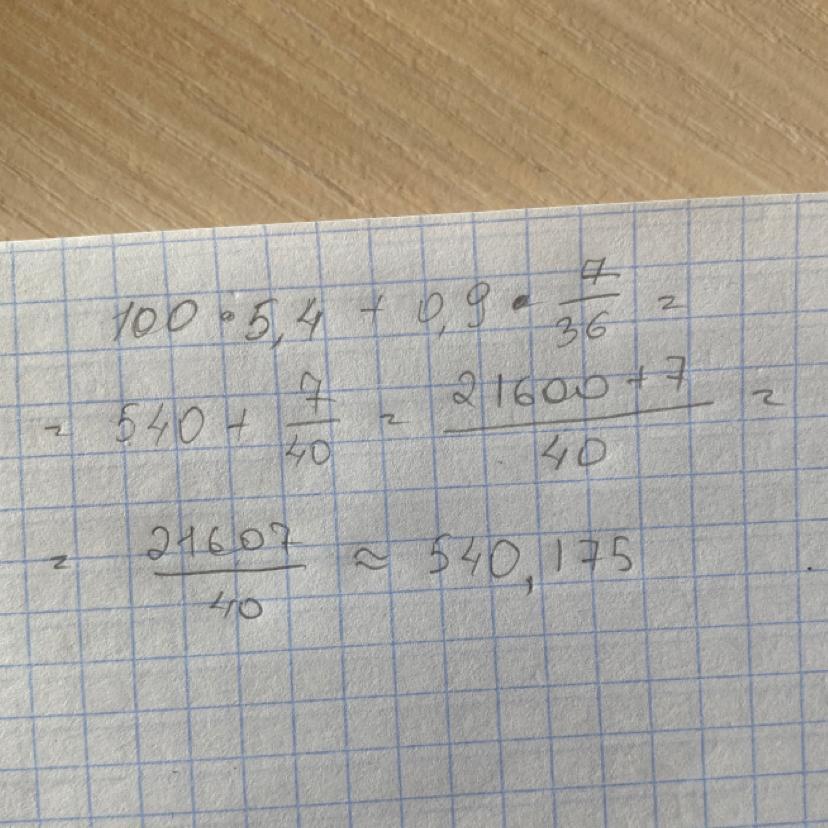 100 · 5,4 + 0,9 · 7/36 =
= 540 + 7/40 = (21600 + 7)/40 =
= 21607/40 ≈ 540,175